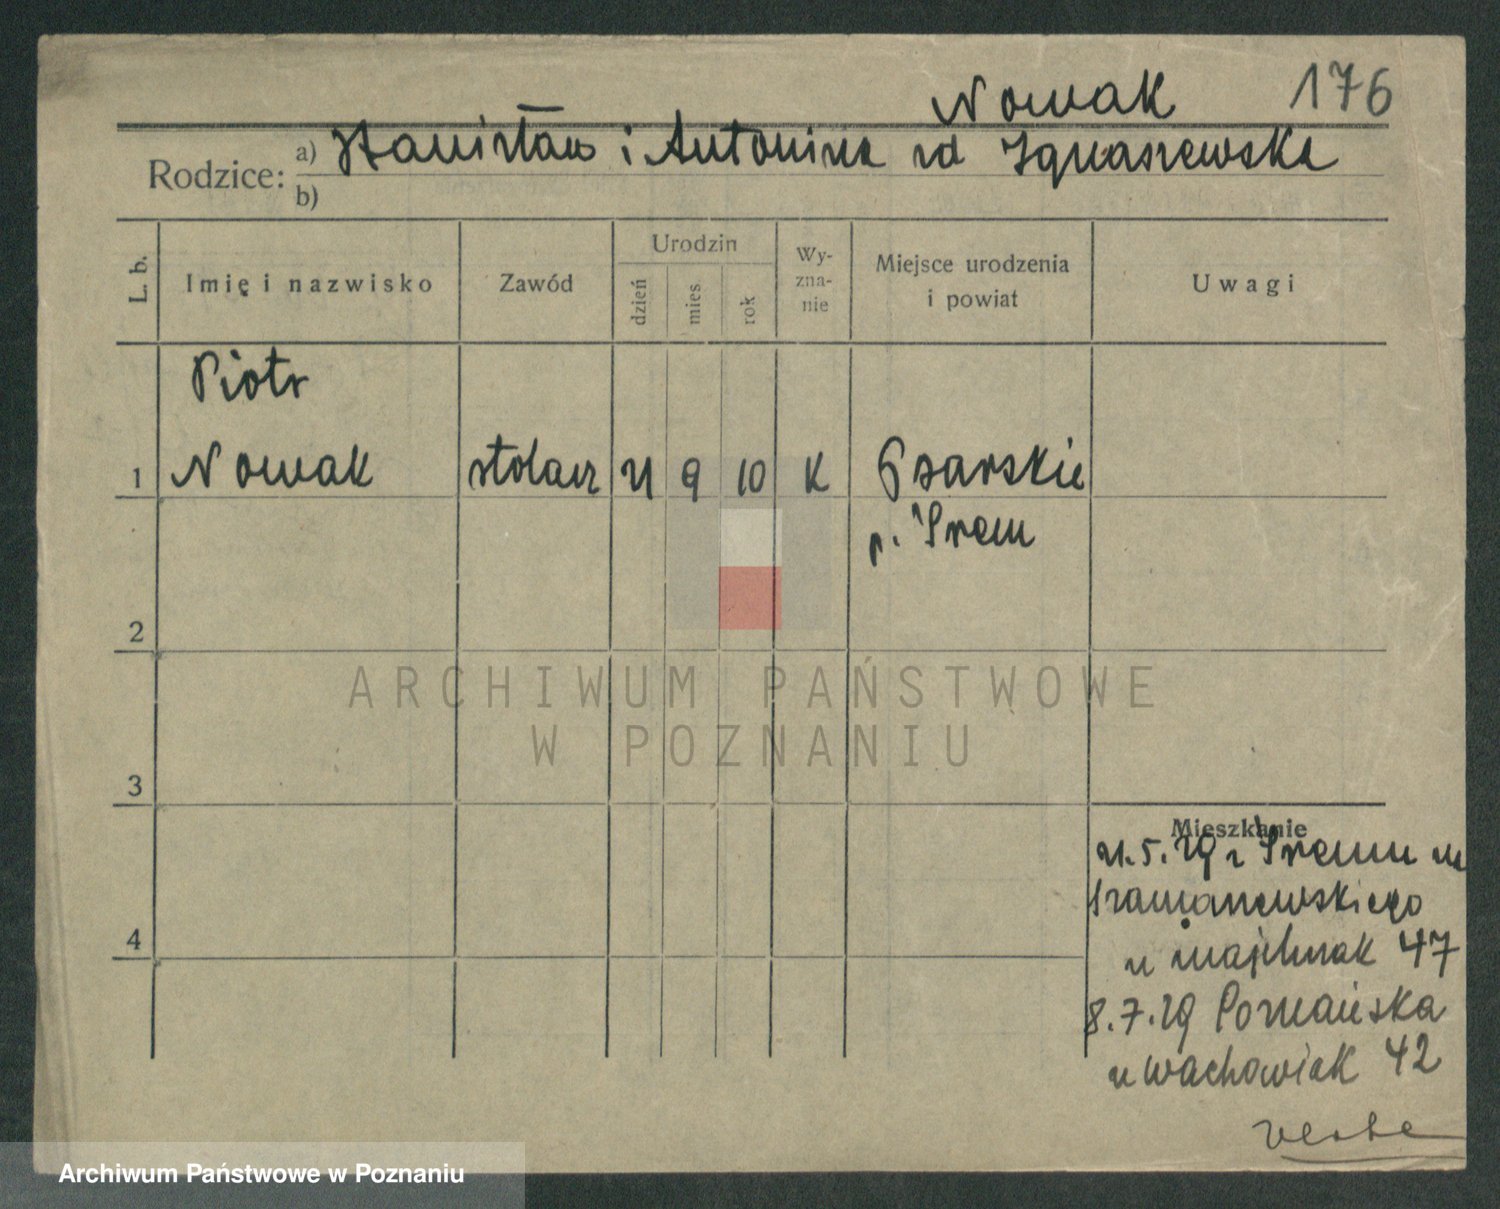 Nowak 176
Rodzice: a) Stanisław i Antonina zd Ignaszewska
b)
L. b. Imię i nazwisko Zawód Urodzin dzień mies rok Wyznanie Miejsce urodzenia i powiat Uwagi
Piotr
1 Nowak stolarz 21 9 10 K Psarskie
p. Śrem
2
ARCHIWUM PAŃSTWOWE
W POZNANIU
3
Mieszkanie
21.5.29 z Śremu
4
47
8.7.29 Poznańska
u Wachowiak 42
Archiwum Państwowe w Poznaniu